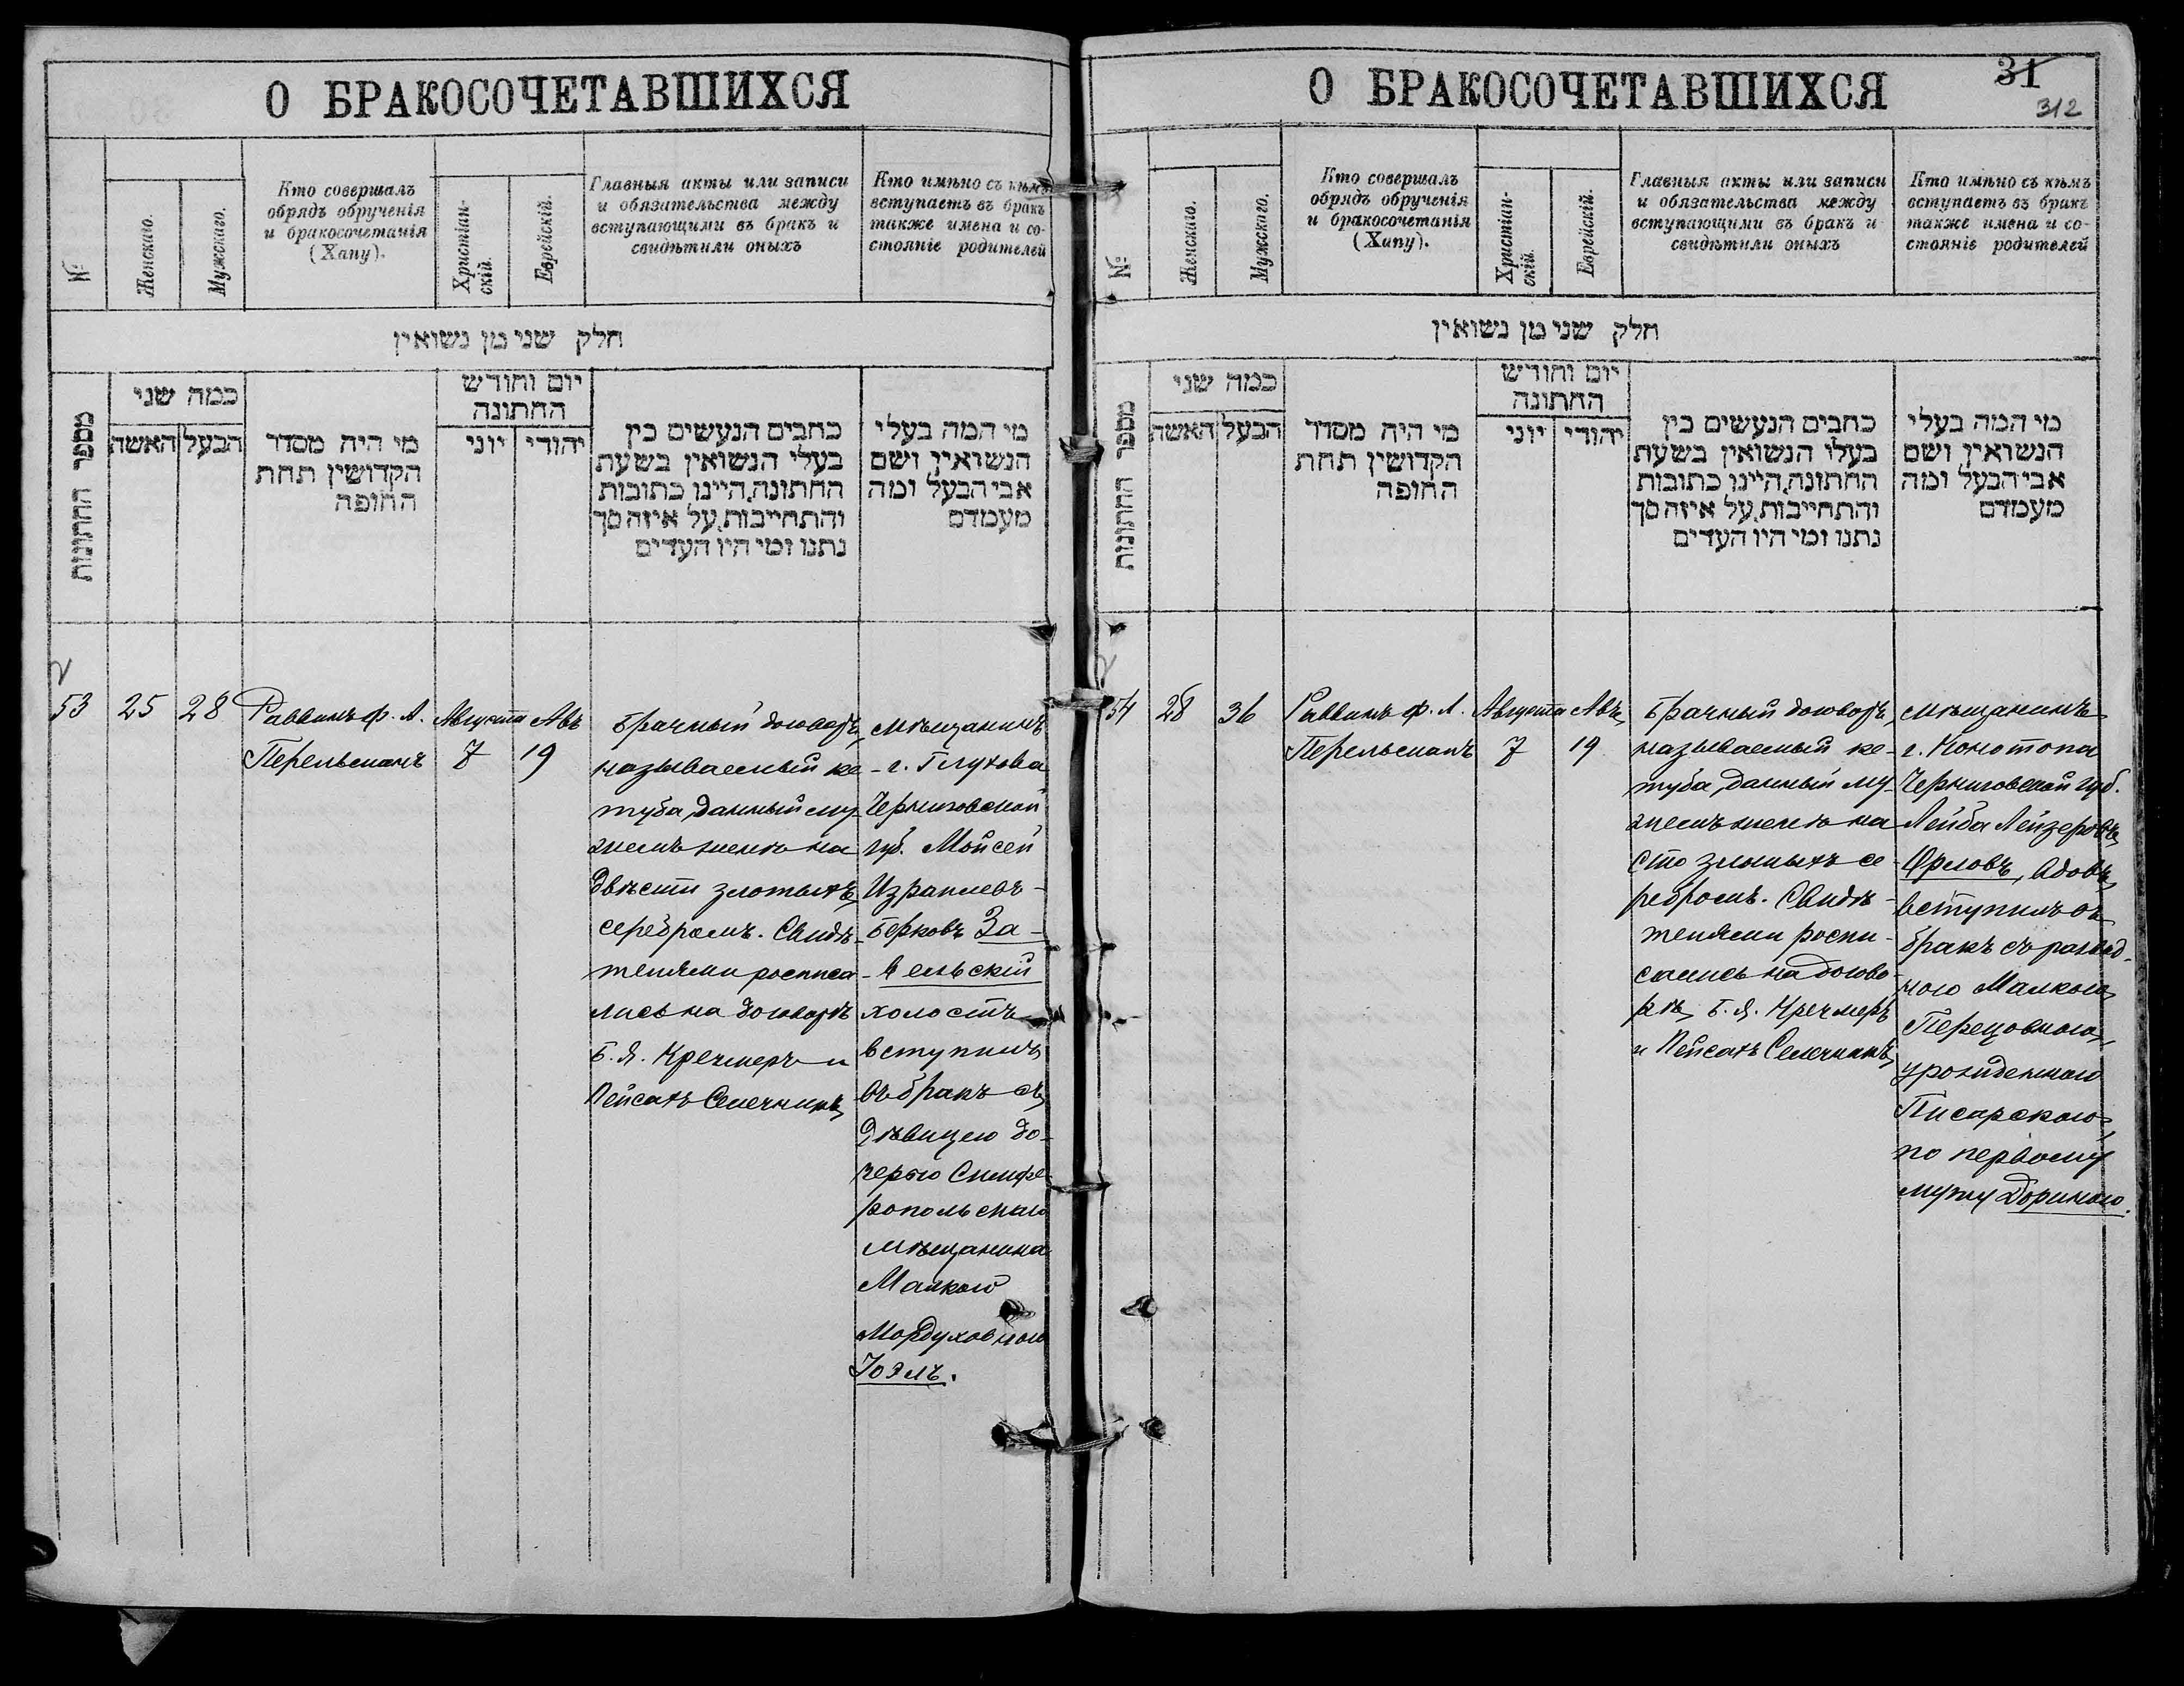 О БРАКОСОЧЕТАВШИХСЯ
№
Женскаго.
Мужскаго.
Кто совершалъ
обрядъ обрученія
и бракосочетанія
(Хапу).
Христіан-
скій.
Еврейскій.
Главныя акты или записи
и обязательства между
вступающими въ бракъ и
свидѣтили оныхъ
Кто имѣно съ кѣмъ
вступаетъ въ бракъ
также имена и со-
стояніе родителей
חלק שני מן נשואין
מספר החתונות
כמה שני
האשה
הבעל
מי היה מסדר
הקדושין תחת
החופה
יום וחודש
החתונה
יוני
יהודי
כתבים הנעשים בין
בעלי הנשואין בשעת
החתונה,היינו כתובות
והתחייבות,על איזה סך
נתנו ומי היו העדים
מי המה בעלי
הנשואין ושם
אבי הבעל ומה
מעמדם
53
25
28
Раввинъ ф. Л.
Перельманъ
Августа
7
Авъ
19
Брачный договоръ,
называемый ке-
туба, данный му-
жемъ женѣ на
двѣсти злотыхъ
серебромъ. Свидѣ-
телями росписа-
лись на договорѣ
Б. Я. Кречмеръ и
Пейсахъ Селечникъ
Мѣщанинъ
г. Глухова
Черниговской
губ. Мойсей
Израилевъ-
Берковъ За-
вельскій
холостъ
вступилъ
въ бракъ съ
дѣвицею до-
черью Симфе-
ропольскаго
мѣщанина
Малкою
Мордуховною
Іоэль.
О БРАКОСОЧЕТАВШИХСЯ
31
312
№
Женскаго.
Мужскаго.
Кто совершалъ
обрядъ обрученія
и бракосочетанія
(Хапу).
Христіан-
скій.
Еврейскій.
Главныя акты или записи
и обязательства между
вступающими въ бракъ и
свидѣтили оныхъ
Кто имѣно съ кѣмъ
вступаетъ въ бракъ
также имена и со-
стояніе родителей
חלק שני מן נשואין
מספר החתונות
כמה שני
האשה
הבעל
מי היה מסדר
הקדושין תחת
החופה
יום וחודש
החתונה
יוני
יהודי
כתבים הנעשים בין
בעלי הנשואין בשעת
החתונה,היינו כתובות
והתחייבות,על איזה סך
נתנו ומי היו העדים
מי המה בעלי
הנשואין ושם
אבי הבעל ומה
מעמדם
54
28
36
Раввинъ ф. Л.
Перельманъ
Августа
7
Авъ
19
Брачный договоръ,
называемый ке-
туба, данный му-
жемъ женѣ на
сто злотыхъ се-
ребромъ. Свидѣ-
телями роспи-
сались на догово-
рѣ Б. Я. Кречмеръ
и Пейсахъ Селечникъ
Мѣщанинъ
г. Конотопа
Черниговской губ.
Лейба Лейзеровъ
Орловъ, вдовъ,
вступилъ въ
бракъ съ развед-
ною Малкою
Перецовною,
урожденною
Писарскою,
по первому
мужу Дориною.